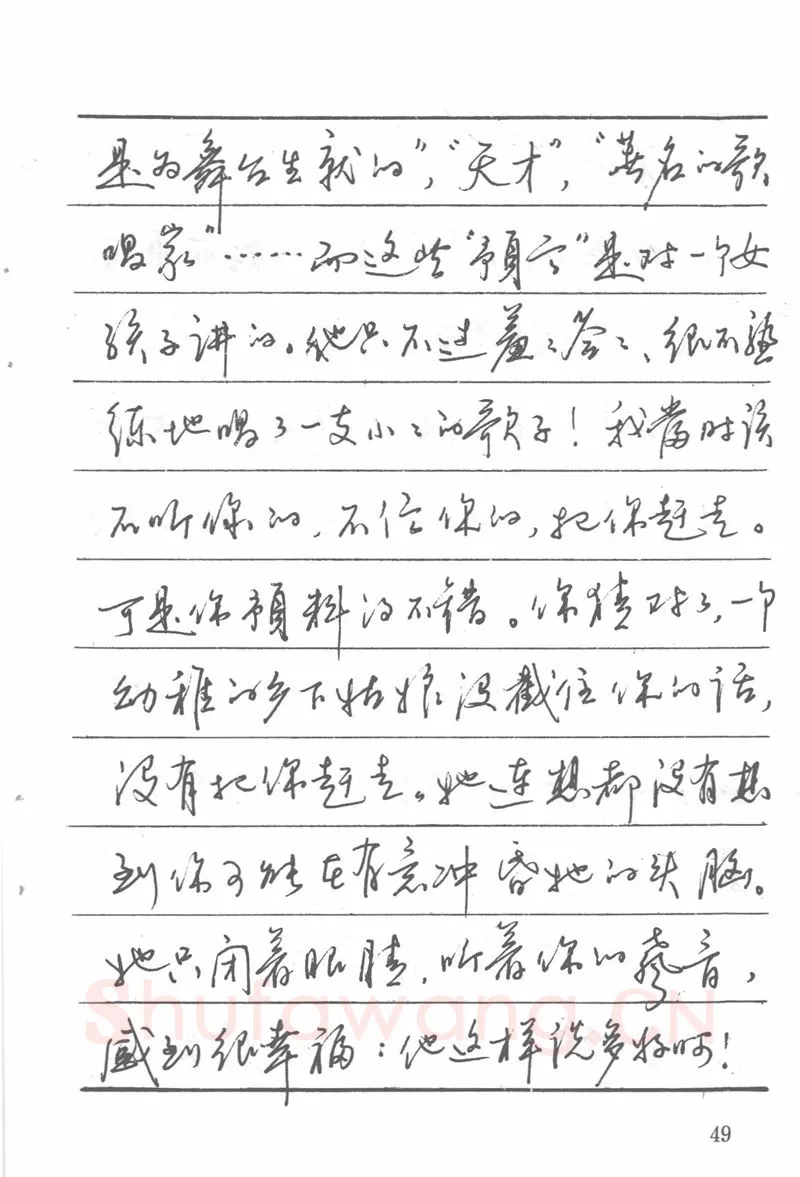 是为舞台生就的”，“天才”，“著名的歌
唱家”……而这些“預言”是对一个女
孩子讲的。她只不过羞羞答答、很不熟
练地唱了一支小小的歌子！我當时该
不听你的，不信你的，把你赶走。
可是你預料得不错。你猜对了，一个
幼稚的乡下姑娘没截住你的话，
没有把你赶走。她连想都没有想
到你可能在有意冲昏她的头脑。
她只闭着眼睛，听着你的聲音，
感到很幸福：他这样说多好呵！
Shufawang.CN
49